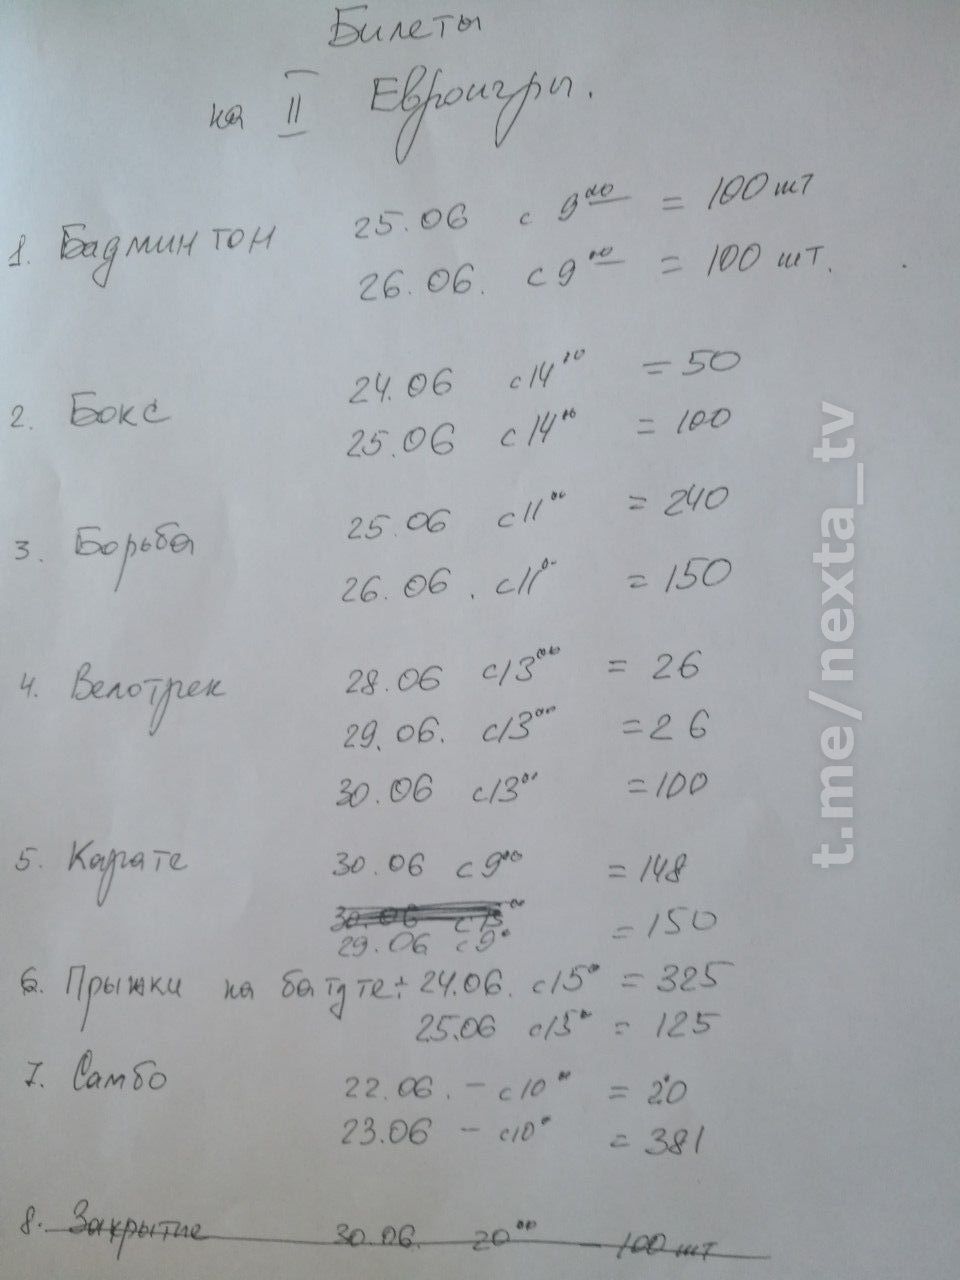 Билеты
на II Евроигры.
1. Бадминтон 25.06 с 9⁰⁰ = 100 шт
26.06. с 9⁰⁰ = 100 шт.
2. Бокс 24.06 с 14⁰⁰ = 50
25.06 с 14⁰⁰ = 100
3. Борьба 25.06 с 11⁰⁰ = 240
26.06. с 11⁰⁰ = 150
4. Велотрек 28.06 с 13⁰⁰ = 26
29.06. с 13⁰⁰ = 26
30.06 с 13⁰⁰ = 100
5. Карате 30.06 с 9⁰⁰ = 148
30.06 с 15⁰⁰
29.06 с 9⁰ = 150
6. Прыжки на батуте: 24.06. с 15⁰ = 325
25.06 с 15⁰ = 125
7. Самбо 22.06. - с 10⁰⁰ = 20
23.06 - с 10⁰ = 381
8. Закрытие 30.06. 20⁰⁰ - 100 шт
t.me/nexta_tv